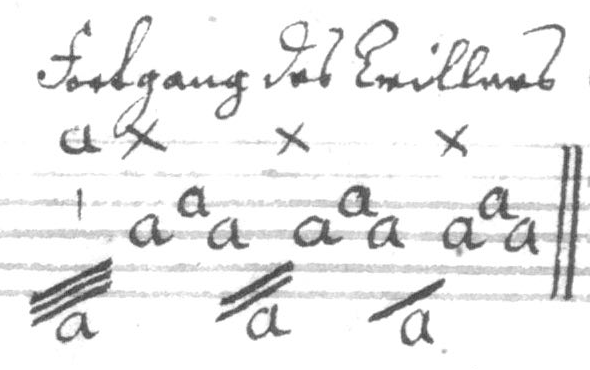 Fortgang des Trillers
a × × ×
a a a a a a a a a
a a a